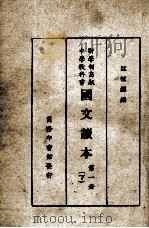 江恆源編
新學制高級
中學教科書
國文讀本
第一册
(下)
商務印書館發行